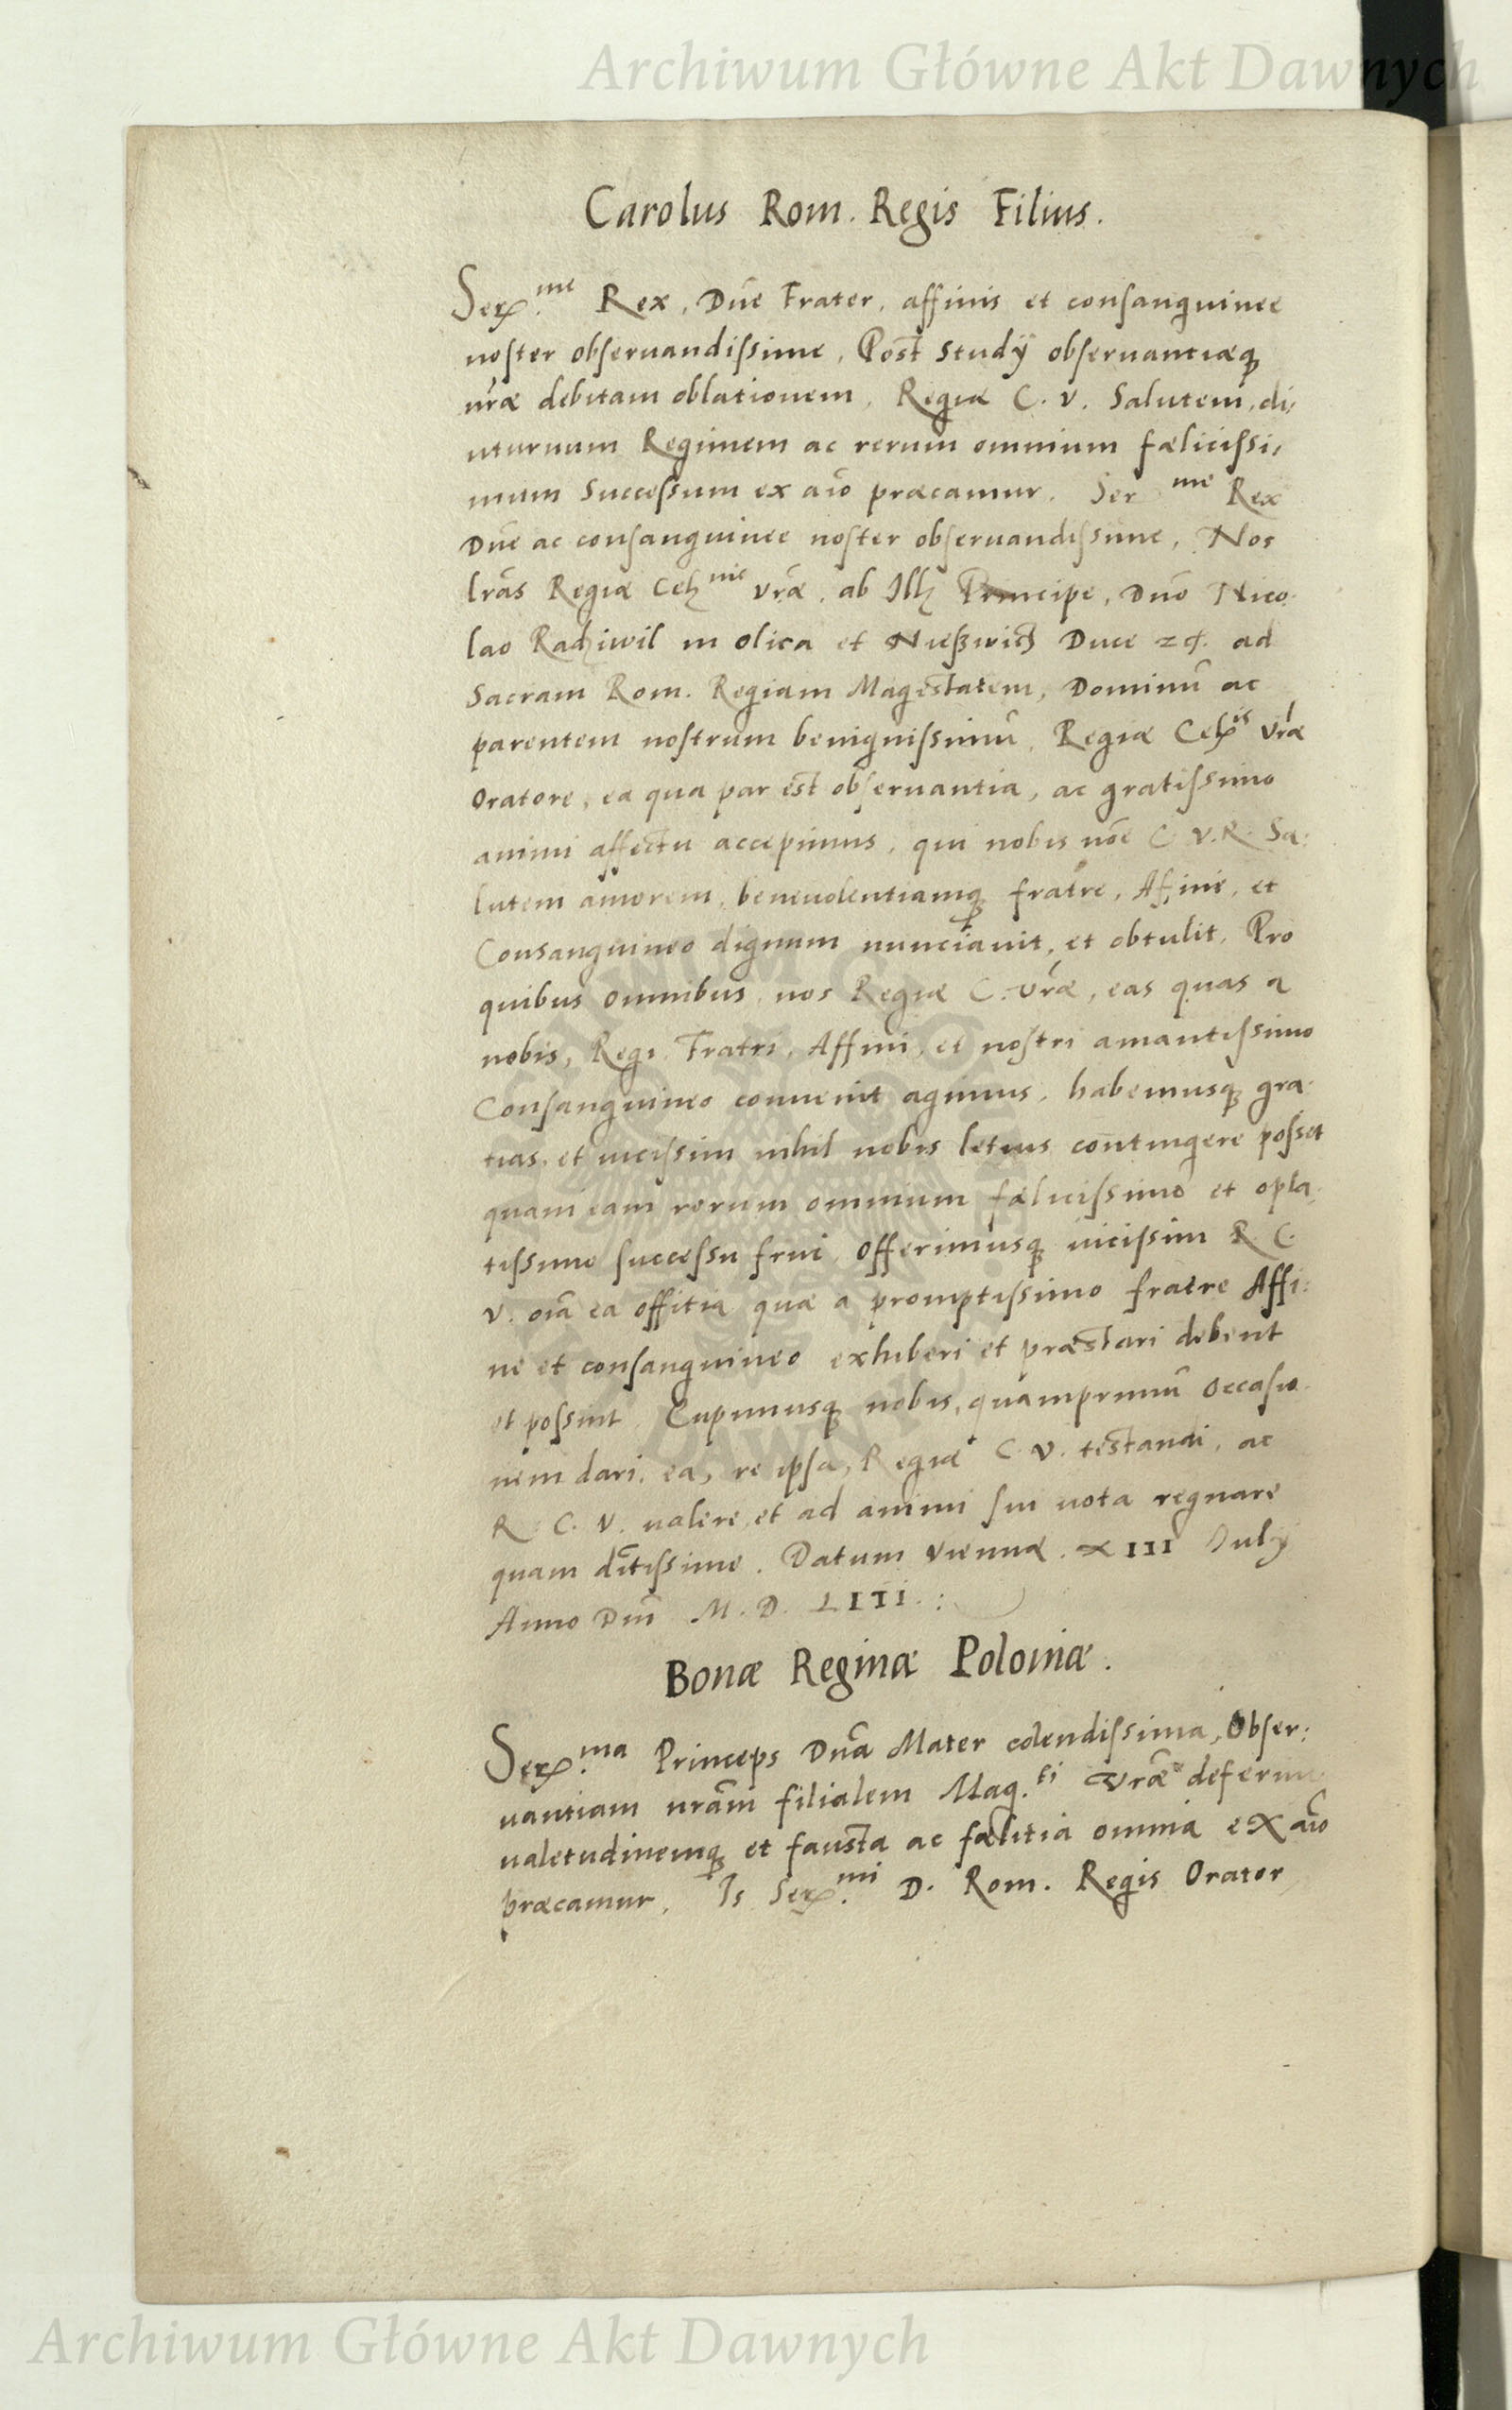 Archiwum Główne Akt Dawnych
Carolus Rom. Regis Filius.
Ser.me Rex, Dne Frater, affinis et consanguinee
noster obseruandissime, Post studÿ obseruantiæq
nræ debitam oblationem, Regiæ C. V. Salutem, di,
uturnum Regimem ac rerum omnium fælicissi,
mum Successum ex aio præcamur. Ser me Rex
Dne ac consanguinee noster obseruandissime, Nos
lras Regiæ Cel nis vræ, ab Ill Principe, Dno Nico
lao Radziwil in olica et Nießwicz Duce zc. ad
Sacram Rom. Regiam Magestatem, Dominu ac
parentem nostrum benignissimu, Regiæ Cel is vræ
Oratore, ea qua par est obseruantia, ac gratissimo
animi affectu accepimus, qui nobis noe C V. R. Sa:
lutem amorem, beneuolentiamq fratre, Afine, et
Consanguineo dignum nunciauit, et obtulit, Pro
quibus omnibus, nos Regiæ C. vræ, eas quas a
nobis, Regi, Fratri, Affini, et nostri amantissimo
Consanguineo conuenit agimus, habemusq gra:
tias, et uicissim nihil nobis letius contingere posset
quam eam rerum omnium fælicissimo et opta:
tissimo successu frui, Offerimusq uicissim R. C.
V. oia ea offitia quæ a promptissimo fratre Affi:
ne et consanguineo exhiberi et præstari debent
et possint. Cupimusq nobis, quamprimu occasio
nem dari, ea, re ipsa, Regiæ C. V. testandi, ac
R. C. V. valere, et ad animi sui uota regnare
quam ditissime. Datum Viennæ. XIII Julÿ
Anno Dni M. D. LIII.:
Bonæ Reginæ Poloniæ.
Ser.ma Princeps Dna Mater colendissima, Obser:
uantiam nram filialem Mag.ti Vræ deferimu
ualetudinemq et fausta ac fælitia omnia ex aio
præcamur, Is Ser.mi D. Rom. Regis Orator
Archiwum Główne Akt Dawnych